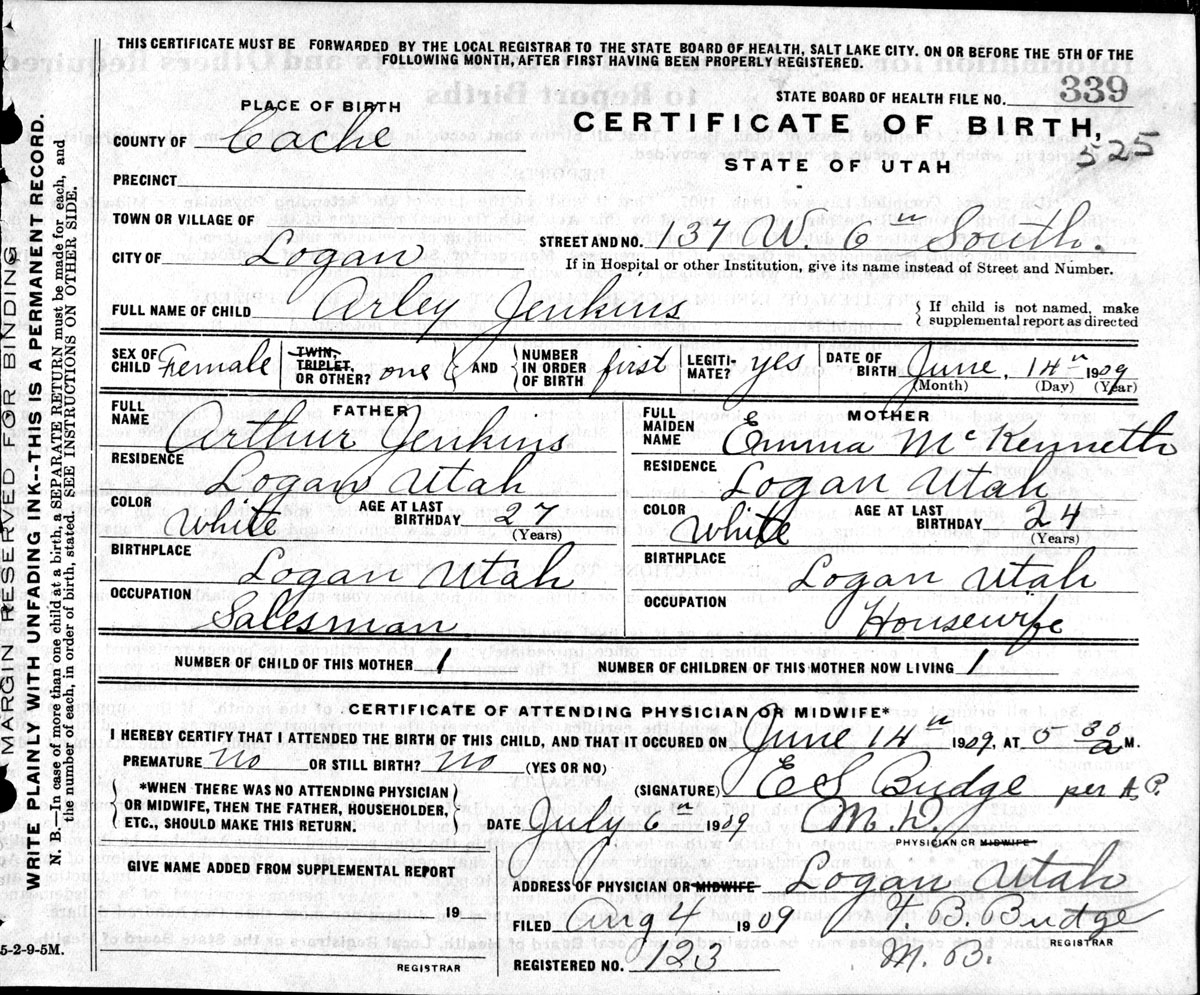 THIS CERTIFICATE MUST BE FORWARDED BY THE LOCAL REGISTRAR TO THE STATE BOARD OF HEALTH, SALT LAKE CITY. ON OR BEFORE THE 5TH OF THE
FOLLOWING MONTH, AFTER FIRST HAVING BEEN PROPERLY REGISTERED.
STATE BOARD OF HEALTH FILE NO. 339
PLACE OF BIRTH
CERTIFICATE OF BIRTH,
525
COUNTY OF Cache
STATE OF UTAH
PRECINCT
TOWN OR VILLAGE OF
STREET AND NO. 137 W. 6th South.
CITY OF Logan
If in Hospital or other Institution, give its name instead of Street and Number.
FULL NAME OF CHILD Arley Jenkins
If child is not named, make
supplemental report as directed
SEX OF CHILD Female
TWIN, TRIPLET, OR OTHER? one
AND NUMBER IN ORDER OF BIRTH first
LEGITIMATE? yes
DATE OF BIRTH June, 14th 1909
(Month) (Day) (Year)
FATHER
FULL NAME Arthur Jenkins
RESIDENCE Logan Utah
COLOR White AGE AT LAST BIRTHDAY 27 (Years)
BIRTHPLACE Logan Utah
OCCUPATION Salesman
MOTHER
FULL MAIDEN NAME Emma McKenneth
RESIDENCE Logan Utah
COLOR White AGE AT LAST BIRTHDAY 24 (Years)
BIRTHPLACE Logan Utah
OCCUPATION Housewife
NUMBER OF CHILD OF THIS MOTHER 1
NUMBER OF CHILDREN OF THIS MOTHER NOW LIVING 1
CERTIFICATE OF ATTENDING PHYSICIAN OR MIDWIFE*
I HEREBY CERTIFY THAT I ATTENDED THE BIRTH OF THIS CHILD, AND THAT IT OCCURED ON June 14th 1909, AT 5 30 a M.
PREMATURE no OR STILL BIRTH? no (YES OR NO)
*WHEN THERE WAS NO ATTENDING PHYSICIAN
OR MIDWIFE, THEN THE FATHER, HOUSEHOLDER,
ETC., SHOULD MAKE THIS RETURN.
(SIGNATURE) E S Budge per A. P.
DATE July 6th 1909 M. D.
PHYSICIAN OR MIDWIFE
GIVE NAME ADDED FROM SUPPLEMENTAL REPORT
ADDRESS OF PHYSICIAN OR MIDWIFE Logan Utah
19
REGISTRAR
FILED Aug 4 1909 Budge
REGISTRAR
REGISTERED NO. 123
5-2-9-5M.
MARGIN RESERVED FOR BINDING
WRITE PLAINLY WITH UNFADING INK--THIS IS A PERMANENT RECORD.
N. B.—In case of more than one child at a birth, SEPARATE RETURN must be made for each, and
the number of each, in order of birth, stated. SEE INSTRUCTIONS ON OTHER SIDE.